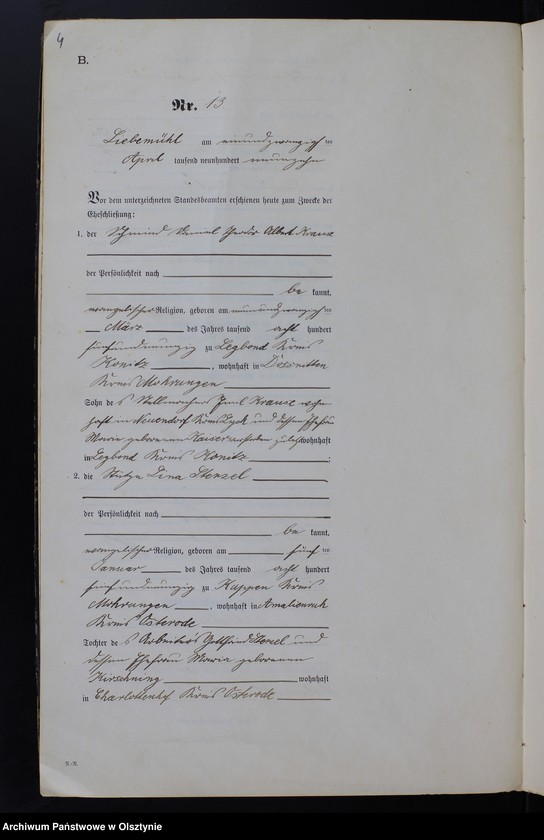 4
B.
Nr. 13
Liebemühl am einundzwanzig ten
April tausend neunhundert neunzehn
Vor dem unterzeichneten Standesbeamten erschienen heute zum Zwecke der
Eheschließung:
1. der Schmied Albert Krause
der Persönlichkeit nach
be kannt,
evangelischer Religion, geboren am neunundzwanzig ten
März des Jahres tausend acht hundert
fünfundneunzig zu Legbond Kreis
Konitz, wohnhaft in
Kreis Mohrungen
Sohn des Emil Krause wohn
haft in Neuendorf Kreis Lyck und dessen Ehefrau
Marie geborenen Kaiser verstorben zuletzt wohnhaft
in Legbond Kreis Konitz;
2. die Stütze Lina Stenzel
der Persönlichkeit nach
be kannt,
evangelischer Religion, geboren am fünf ten
Januar des Jahres tausend acht hundert
fünfundneunzig zu Kuppen Kreis
Mohrungen, wohnhaft in Amalienruh
Kreis Osterode
Tochter des Arbeiters Gottfried Stenzel und
dessen Ehefrau Maria geborenen
Hirschning wohnhaft
in Charlottenhof Kreis Osterode
Archiwum Państwowe w Olsztynie